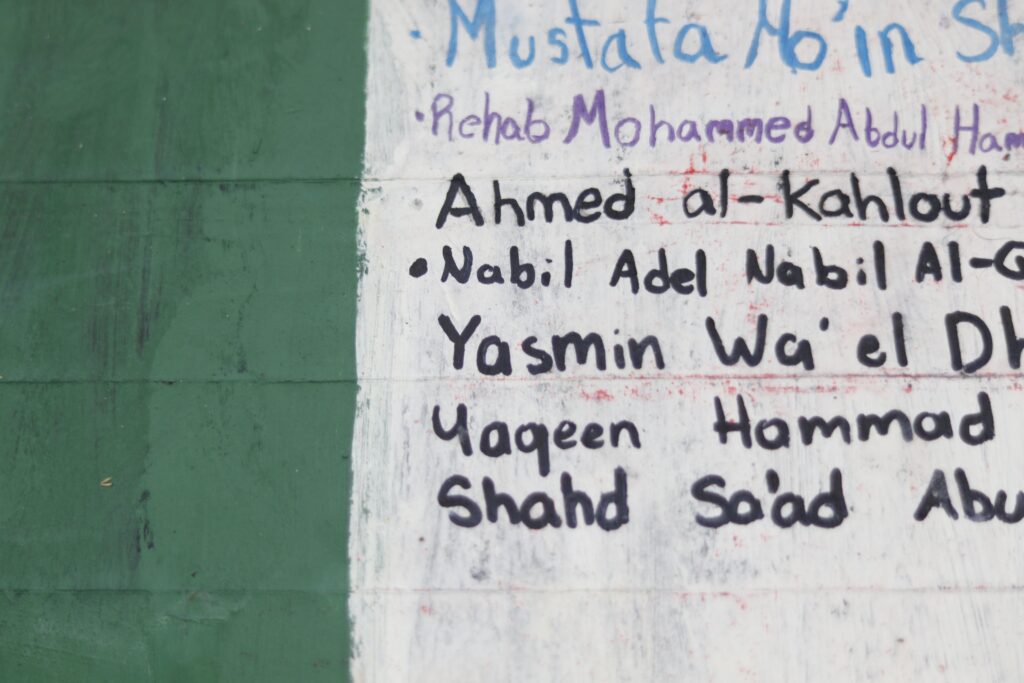 · Mustafa Mo'in Sh
· Rehab Mohammed Abdul Ham
Ahmed al-Kahlout
• Nabil Adel Nabil Al-G
Yasmin Wa'el Dh
Yaqeen Hammad
Shahd Sa'ad Abu